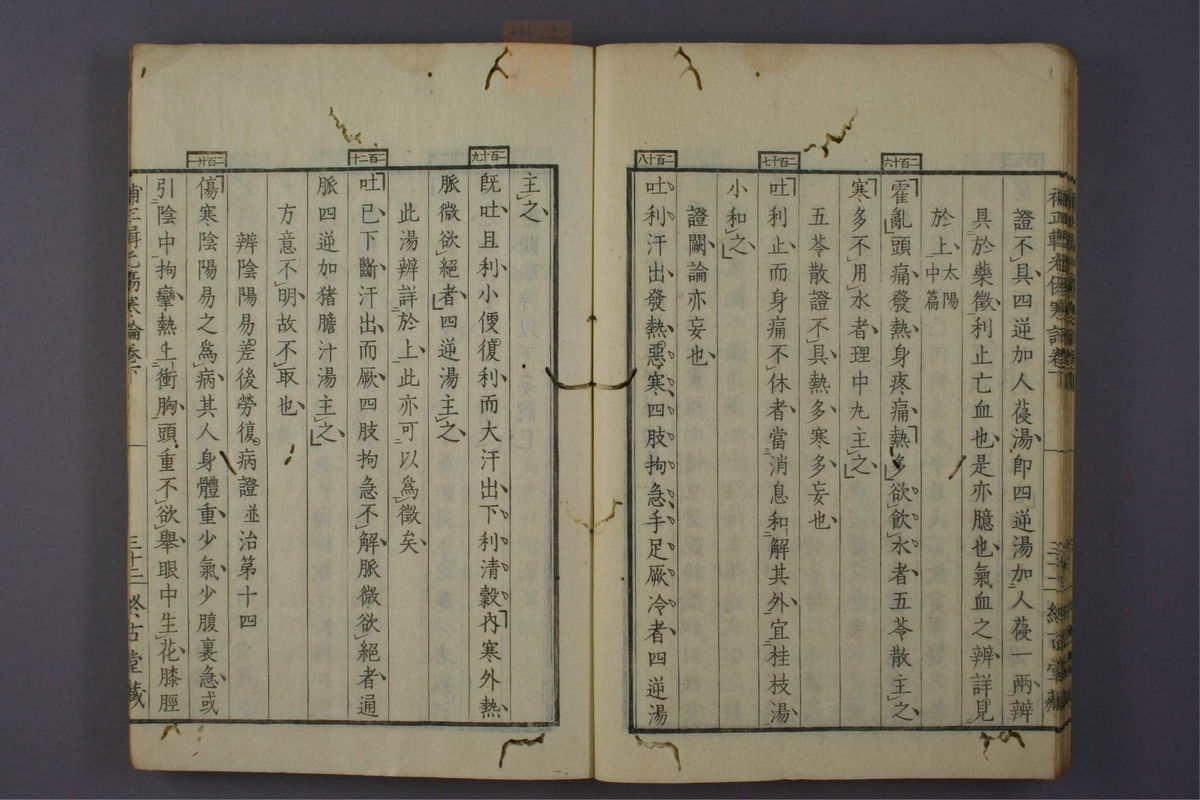 證不具四逆加人葠湯卽四逆湯加人葠一兩辨
具於藥徵利止亡血也是亦臆也氣血之辨詳見
於上太陽中篇
二百十六
霍亂頭痛發熱身疼痛熱多欲飮水者五苓散主之
寒多不用水者理中丸主之
五苓散證不具熱多寒多妄也
二百十七
吐利止而身痛不休者當消息和解其外宜桂枝湯
小和之
證闕論亦妄也
二百十八
吐利汗出發熱惡寒四肢拘急手足厥冷者四逆湯
主之
二百十九
旣吐且利小便復利而大汗出下利清穀內寒外熱
脈微欲絕者四逆湯主之
此湯辨詳於上此亦可以爲徵矣
二百二十
吐已下斷汗出而厥四肢拘急不解脈微欲絕者通
脈四逆加猪膽汁湯主之
方意不明故不取也
辨陰陽易差後勞復病證並治第十四
二百廿一
傷寒陰陽易之爲病其人身體重少氣少腹裏急或
引陰中拘攣熱上衝胸頭重不欲擧眼中生花膝脛
傷寒論卷下 三十二 古堂藏